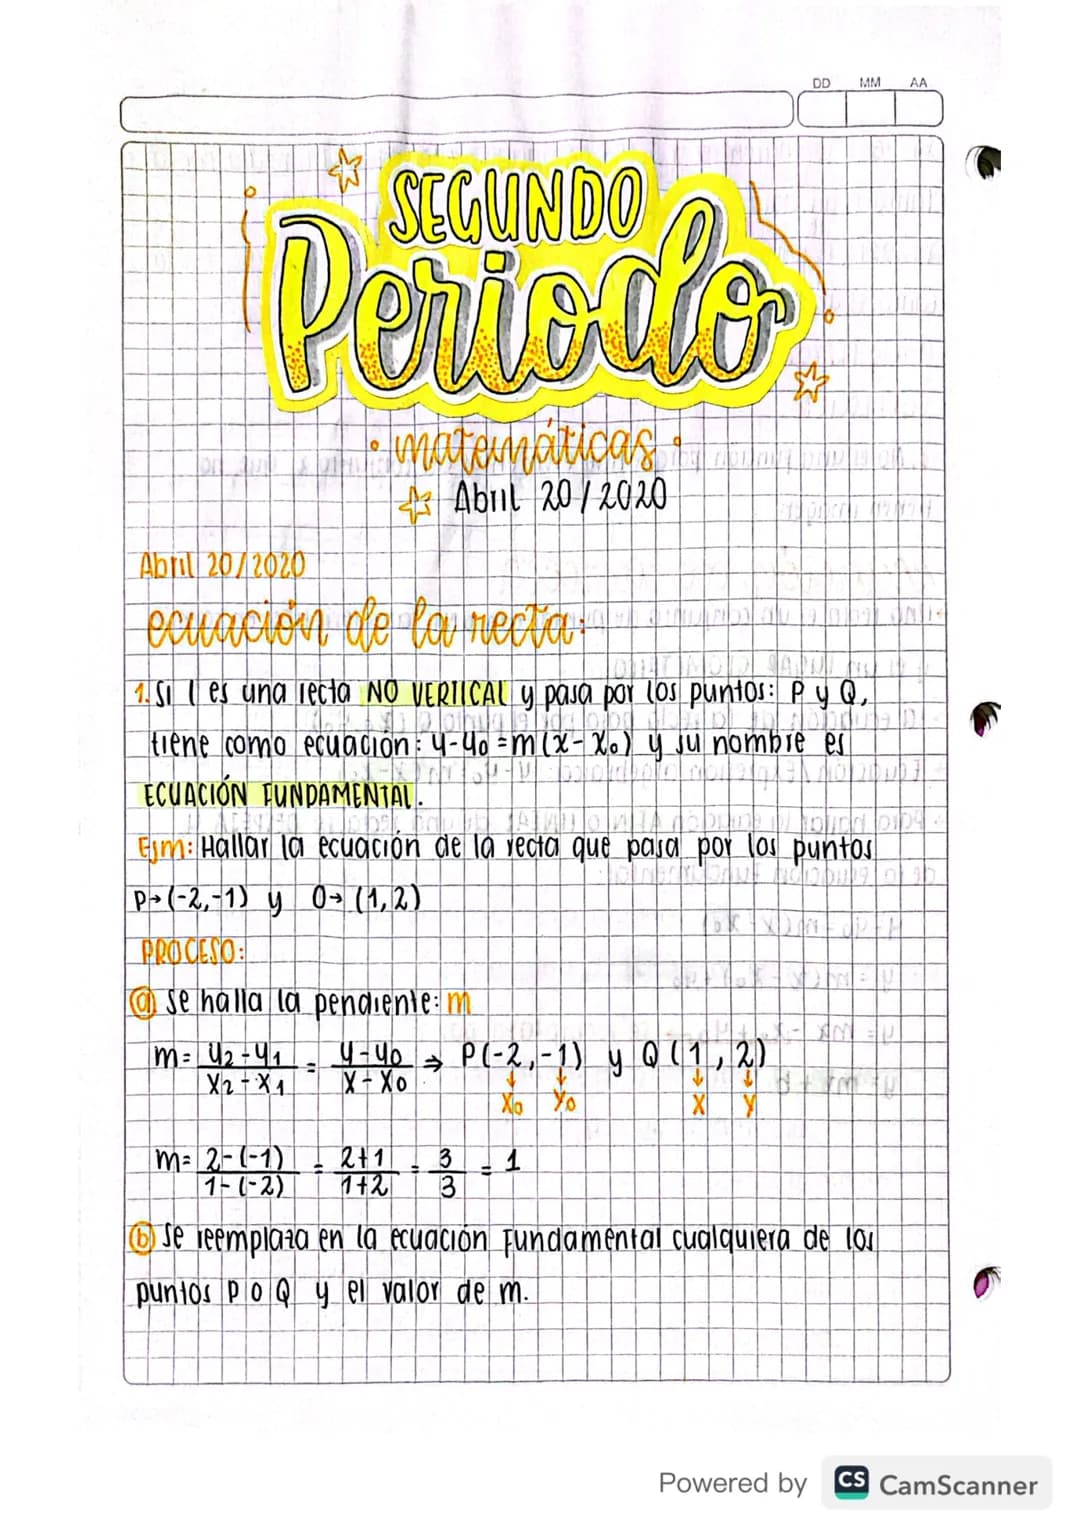 DD MM AA
SEGUNDO
Periodo
• matemáticas •
Abril 20/2020
Abril 20/2020
ecuación de la recta:
1. Si l es una recta NO VERTICAL y pasa por los puntos: P y Q,
tiene como ecuación: y-y₀=m(x-x₀) y su nombre es
ECUACIÓN FUNDAMENTAL.
Ejm: Hallar la ecuación de la recta que pasa por los puntos
P→(-2,-1) y O→(1,2)
PROCESO:
ⓐ Se halla la pendiente: m
m= y₂-y₁/x₂-x₁ = y-y₀/x-x₀ ⇒ P(-2,-1) y Q(1,2)
x₀ y₀ x y
m= 2-(-1)/1-(-2) = 2+1/1+2 = 3/3 = 1
ⓑ Se reemplaza en la ecuación Fundamental cualquiera de los
puntos P o Q y el valor de m.
Powered by CS CamScanner